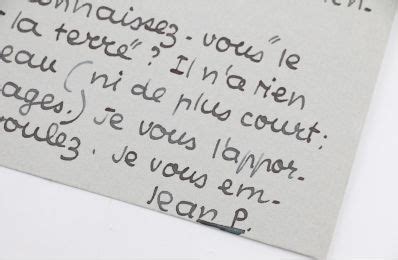 en-
onnaissez-vous "le
la terre" ? Il n'a rien
eau (ni de plus court :
ages.) Je vous l'appor-
oulez. Je vous em-
Jean P.